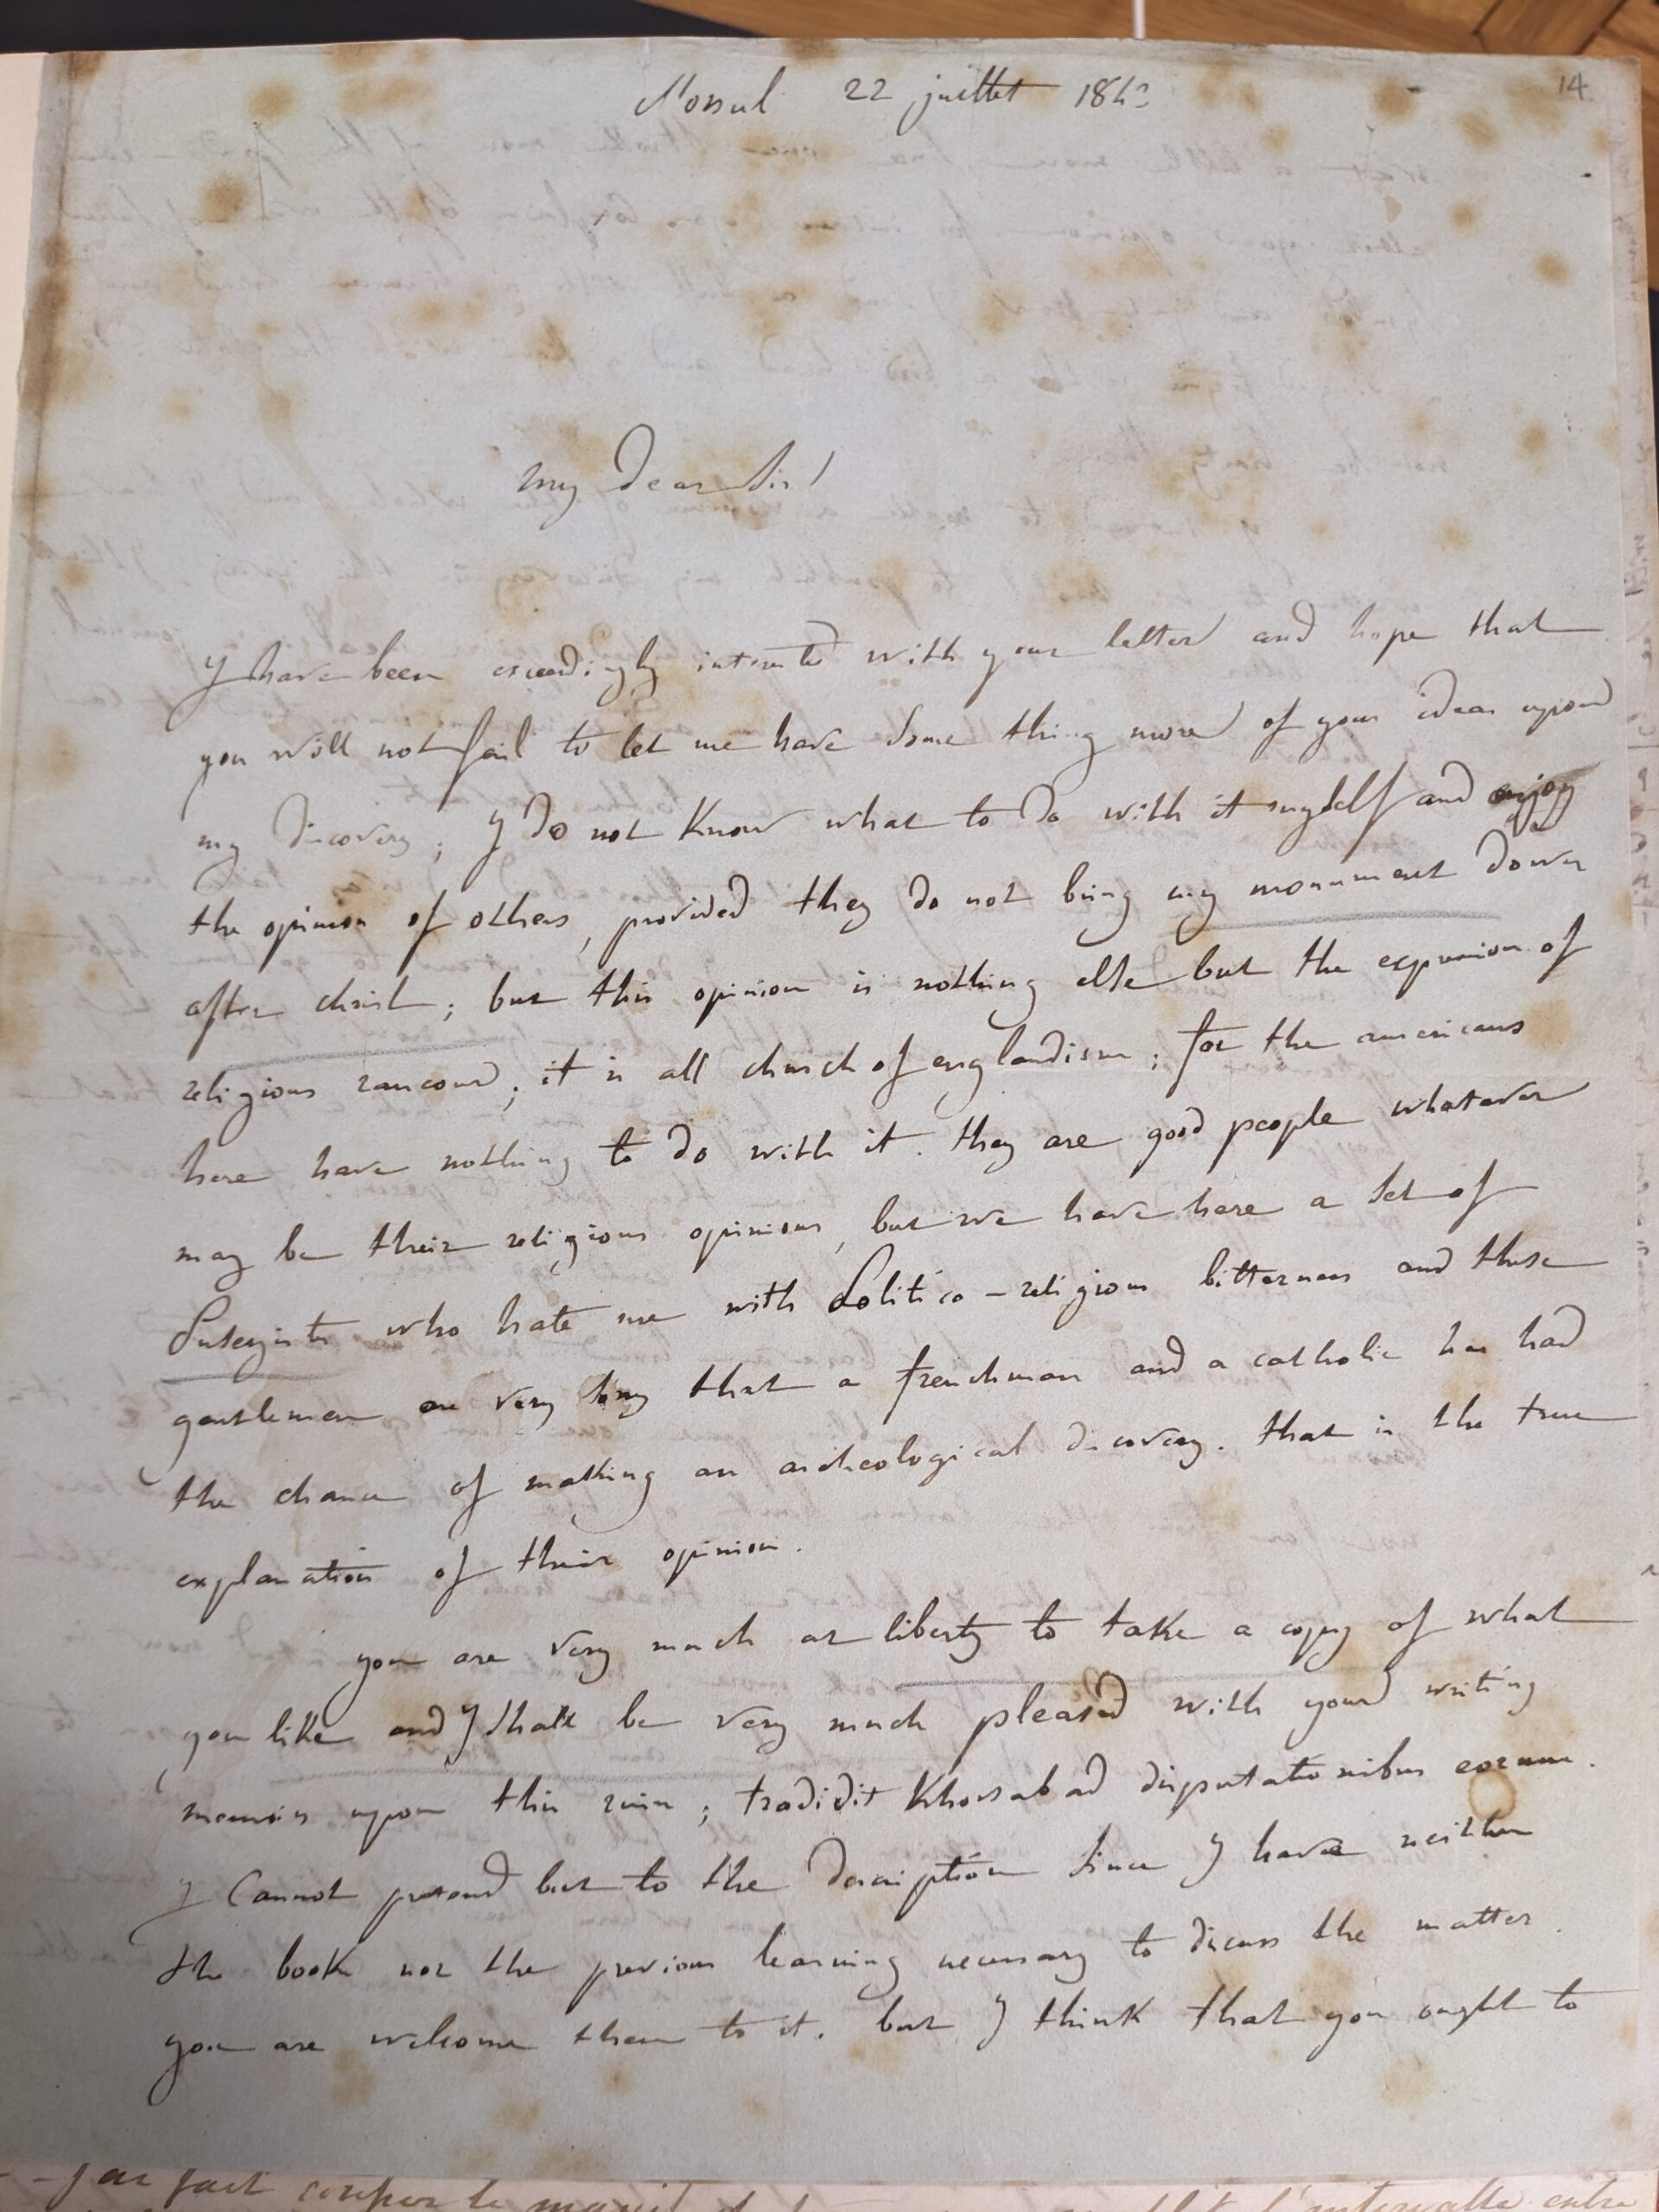 14
Mossul 22 juillet 1843
My Dear Sir!
I have been exceedingly interested with your letter and hope that
you will not fail to let me have some thing more of your ideas upon
my discovery; I do not know what to do with it myself and enjoy
the opinion of others, provided they do not bring my monument down
after christ; but this opinion is nothing else but the expression of
religious rancour; it is all church of englandism; for the americans
here have nothing to do with it. they are good people whatever
may be their religious opinions, but we have here a set of
Puseyists who hate me with politico-religious bitterness and these
gentlemen are very sorry that a frenchman and a catholic has had
the chance of making an archeological discovery. that is the true
explanation of their opinion.
you are very much at liberty to take a copy of what
you like and I shall be very much pleased with your writing
memoirs upon this ruin; tradidit Khorsabad disputationibus eorum.
I Cannot pretend but to the description since I have neither
the book nor the previous learning necessary to discuss the matter.
you are welcome then to it. but I think that you ought to
j'ai fait couper le l'intervalle entre